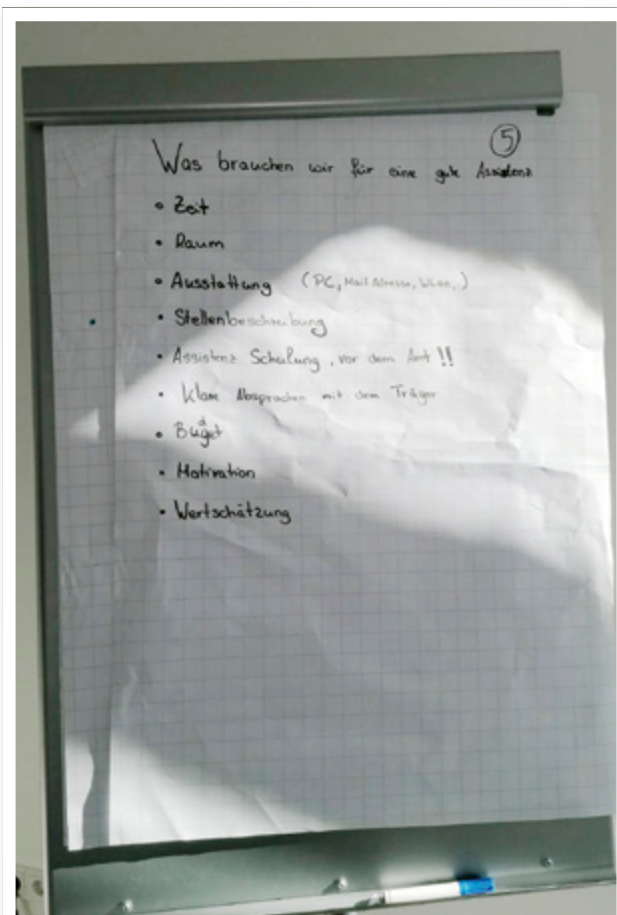 5
Was brauchen wir für eine gute Assistenz
• Zeit
• Raum
• Ausstattung (PC, Mail Adresse, WLan,)
• Stellenbeschreibung
• Assistenz Schulung, vor dem Amt !!
• Klare Absprachen mit dem Träger
• Budget
• Motivation
• Wertschätzung